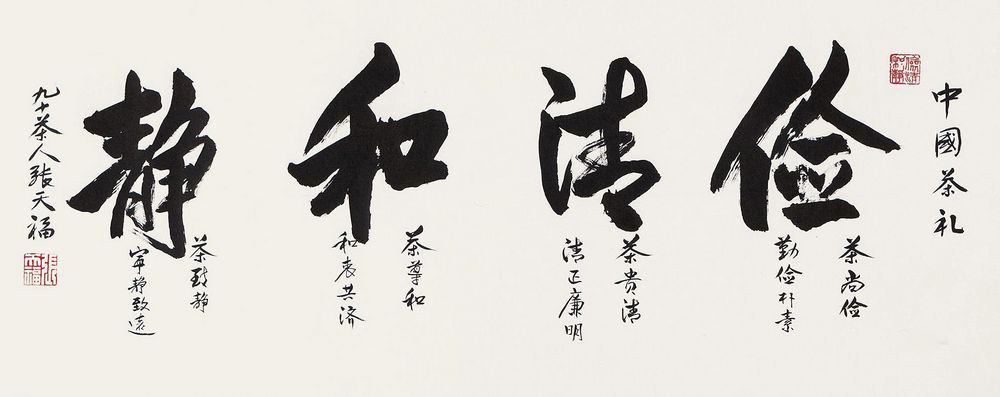 中國茶礼
俭
茶尚俭
勤俭朴素
清
茶贵清
清正廉明
和
茶尊和
和衷共济
静
茶致静
寧静致遠
九十茶人張天福
張天福